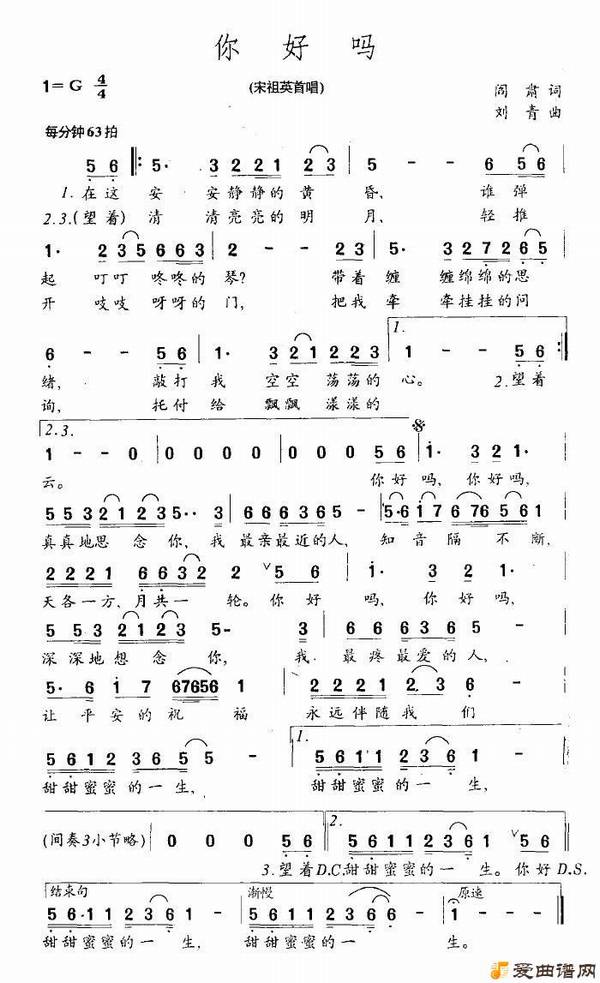 你好吗
1=G 4/4
(宋祖英首唱)
阎肃词
刘青曲
每分钟63拍
5 6 5· 3 2 2 1 2 3 5 - - 6 5 6
1.在这安安静静的黄昏，谁弹
2.3.(望着)清清亮亮的明月，轻推
1· 2 3 5 6 6 3 2 - - 2 3 5· 3 2 7 2 6 5
起叮叮咚咚的琴？带着缠缠绵绵的思
开吱吱呀呀的门，把我牵牵挂挂的问
1.
6 - - 5 6 1· 3 2 1 2 2 3 1 - - 5 6
绪，敲打我空空荡荡的心。2.望着
询，托付给飘飘漾漾的
2.3.
1 - - 0 0 0 0 0 0 0 0 5 6 1· 3 2 1·
云。你好吗，你好吗，
5 5 3 2 1 2 3 5·· 3 6 6 6 3 6 5 - 5·6 1 7 6 7 6 5 6 1
真真地思念你，我最亲最近的人，知音隔不断，
2 2 2 1 6 6 3 2 2 - V 5 6 1· 3 2 1·
天各一方，月共一轮。你好吗，你好吗，
5 5 3 2 1 2 3 5- 3 6 6 6 3 6 5 -
深深地想念你，我最疼最爱的人，
5· 6 1 7 6 7 6 5 6 1 - 2 2 2 1 2· 3 6 -
让平安的祝福永远伴随我们
1.
5 6 1 2 2 3 6 1 - 5 6 1 1 2 3 6 1 - -
甜甜蜜蜜的一生，甜甜蜜蜜的一生，
2.
(间奏3小节略) 0 0 0 5 6 5 6 1 1 2 3 6 1 V 5 6
3.望着D.C.甜甜蜜蜜的一生。你好D.S.
结束句 渐慢 原速
5 6·1 1 2 3 6 1 - - 5 6 1 1 2 3 6 - 1 - - -
甜甜蜜蜜的一生，甜甜蜜蜜的一生。
爱曲谱网